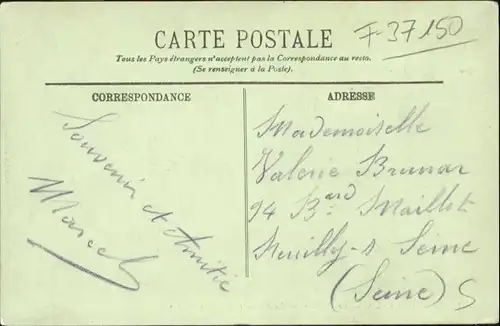 CARTE POSTALE
F-37150
Tous les Pays étrangers n'acceptent pas la Correspondance au recto.
(Se renseigner à la Poste).
CORRESPONDANCE
Souvenir et Amitié
Marcel
ADRESSE
Mademoiselle
Valerie Brunar
94 Bard Maillot
Neuilly-s Seine
(Seine) S